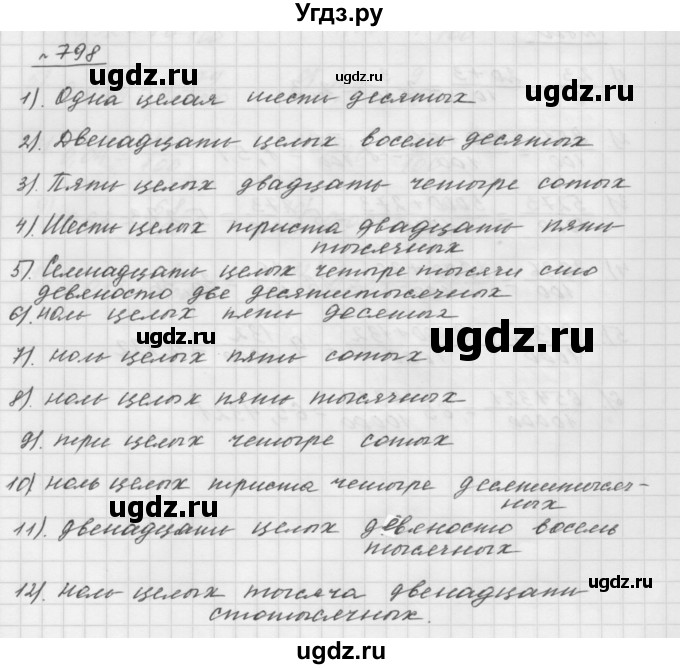 Угдз.ру
№ 798
ugdz.ru
ugdz.ru
ugdz.ru
1). Одна целая шесть десятых
2). Двенадцать целых восемь десятых
3). Пять целых двадцать четыре сотых
4). Шесть целых триста двадцать пять
тысячных
5). Семнадцать целых четыре тысячи сто
девяносто две десятитысячных
6). ноль целых пять десятых
ugdz.ru
ugdz.ru
7). ноль целых пять сотых
8). ноль целых пять тысячных
9). три целых четыре сотых
10) ноль целых триста четыре десятитысяч-
ных
ugdz.ru
ugdz.ru
11). двенадцать целых девяносто восемь
тысячных
ugdz.ru
12). ноль целых тысяча двенадцать
стотысячных.
ugdz.ru